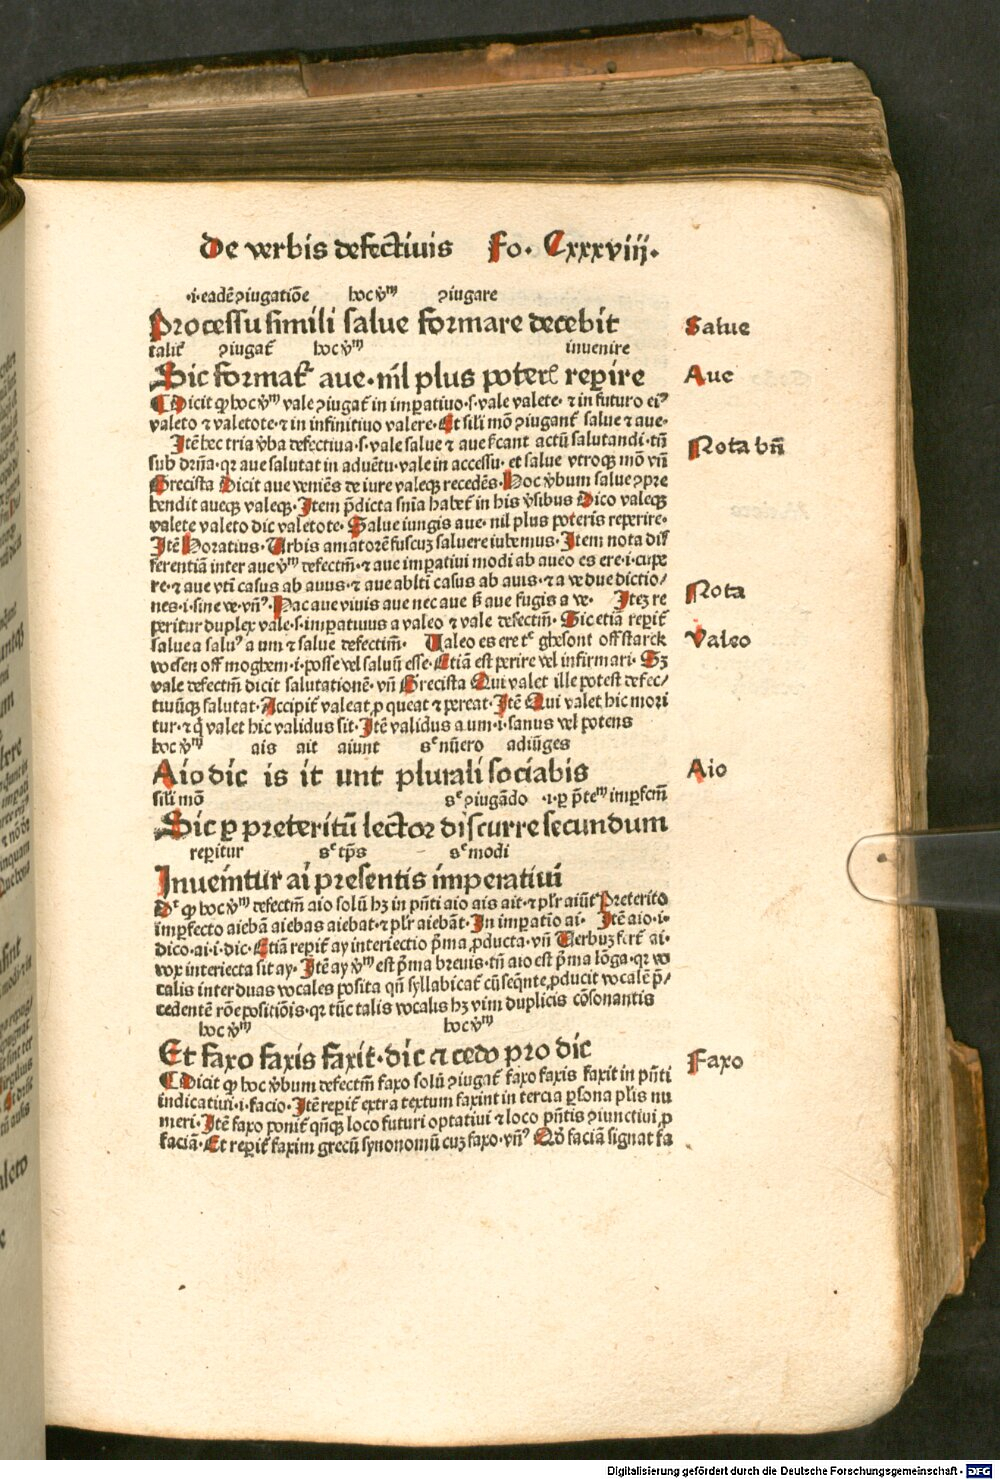 De verbis defectiuis Fo. Cxxxviij.
.i. eadē ꝯiugatiōe hoc v̓ᵐ ꝯiugare
Processu simili salue formare decebit
Salue
talit̓ ꝯiugat̓ hoc v̓ᵐ inuenire
Sic format̓ aue. nil plus poteris reperire
Aue
Dicit ꝙ hoc v̓ᵐ vale ꝯiugat̓ in imperatiuo .s. vale valete. ⁊ in futuro eiꝰ
valeto ⁊ valetote. ⁊ in infinitiuo valere. Et sili mō ꝯiugant̓ salue ⁊ aue.
Itē hec tria v̓ba defectiua .s. vale salue ⁊ aue signification̄t actū salutandi. tn̄
Nota bn̄
sub drn̄a. qr aue salutat in aduētu. vale in accessu. et salue vtroqꝫ mō vn̄
Grecista Dicit aue veniēs de iure valeqꝫ recedēs. Hoc v̓bum salue ꝯpre
hendit aueqꝫ valeqꝫ. Item p̄dicta snīa habet̓ in his v̓sibus Dico valeqꝫ
valete valeto dic valetote. Salue iungis aue. nil plus poteris reperire.
Itē Horatius. Urbis amatorē fuscuꝫ saluere iubemus. Item nota dif
ferentiā inter aue v̓ᵐ defectiuū. ⁊ aue imperatiui modi ab aueo es ere .i. cupe
re. ⁊ aue vti casus ab auus. ⁊ aue ablti casus ab auis. ⁊ a ve due dictio/
nes .i. sine ve. vn̄ꝰ. Hac aue viuis aue nec aue s̄ aue fugis a ve. Iteꝫ re
Nota
peritur duplex vale .s. imperatiuus a valeo ⁊ vale defectiuū. Sic etiā reperit̓
salue a saluꝰ a um ⁊ salue defectiuū. Ualeo es ere ghesont off starck
Valeo
wesen off moghem .i. posse vel saluū esse. Etiā est perire vel infirmari. Sꝫ
vale defectiuū dicit salutationē. vn̄ Grecista Qui valet ille potest defec/
tiuūqꝫ salutat. Accipit̓ valeat, ꝓ queat ⁊ pereat. Itē Qui valet hic mori
tur. ⁊ q̇ valet hic validus sit. Itē validus a um .i. sanus vel potens
hoc v̓ᵐ ais ait aiunt sꝫ nūero adiūges
Aio dic is it unt plurali sociabis
Aio
sili mō sꝫ ꝯiugādo .i. ꝑ p̄teᵐ imperfectū
Sic per preteritū lector discurre secundum
reperitur sꝫ tp̄s sꝫ modi
Inuenitur ai presentis imperatiui
Dꝫ ꝙ hoc v̓ᵐ defectiuū aio solū hꝫ in pn̄ti aio ais ait. ⁊ plr̄ aiūt Preterito
imperfecto aiebā aiebas aiebat. ⁊ plr̄ aiebāt. In imperatiuo ai. Itē aio .i.
dico. ai .i. dic. Etiā reperit̓ ay interiectio p̄ma ꝓducta. vn̄ Uerbuꝫ fert̓ ai.
vox interiecta sit ay. Itē ay v̓ᵐ est p̄ma breuis. tn̄ aio est p̄ma lōga. qr vo
calis inter duas vocales posita qn̄ syllabicat̓ cū seqn̄te, ꝓducit vocalē p̄/
cedentē rōe positiōis. qr tūc talis vocalis hꝫ vim duplicis cōsonantis
hoc v̓ᵐ hoc v̓ᵐ
Et faxo faxis faxit. dic et cedo pro dic
Faxo
Dicit ꝙ hoc v̓bum defectiuū faxo solū ꝯiugat̓ faxo faxis faxit in pn̄ti
indicatiui .i. facio. Itē reperit̓ extra textum faxint in tercia ꝑsona plis nu
meri. Itē faxo ponit̓ qn̄qꝫ loco futuri optatiui ⁊ loco pn̄tis ꝯiunctiui, ꝓ
faciā. Et reperit̓ faxim grecū synonomū cuꝫ faxo. vn̄ꝰ Qḋ faciā signat fa
Digitalisierung gefördert durch die Deutsche Forschungsgemeinschaft - DFG